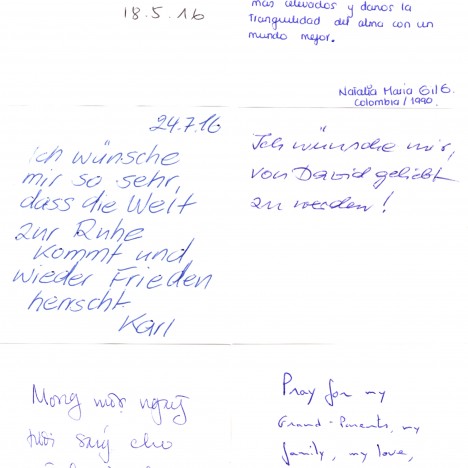 18.5.16
más elevados y danos la
Tranquilidad del alma con un
mundo mejor.
Natalia Maria Gil G.
Colombia / 1990.
24.7.16
Ich wünsche
mir so sehr,
dass die Welt
zur Ruhe
kommt und
wieder Frieden
herrscht
Karl
Ich wünsche mir,
von David geliebt
zu werden!
Mong mọi người
cho
Pray for my
Grand-Parents, my
family, my love,